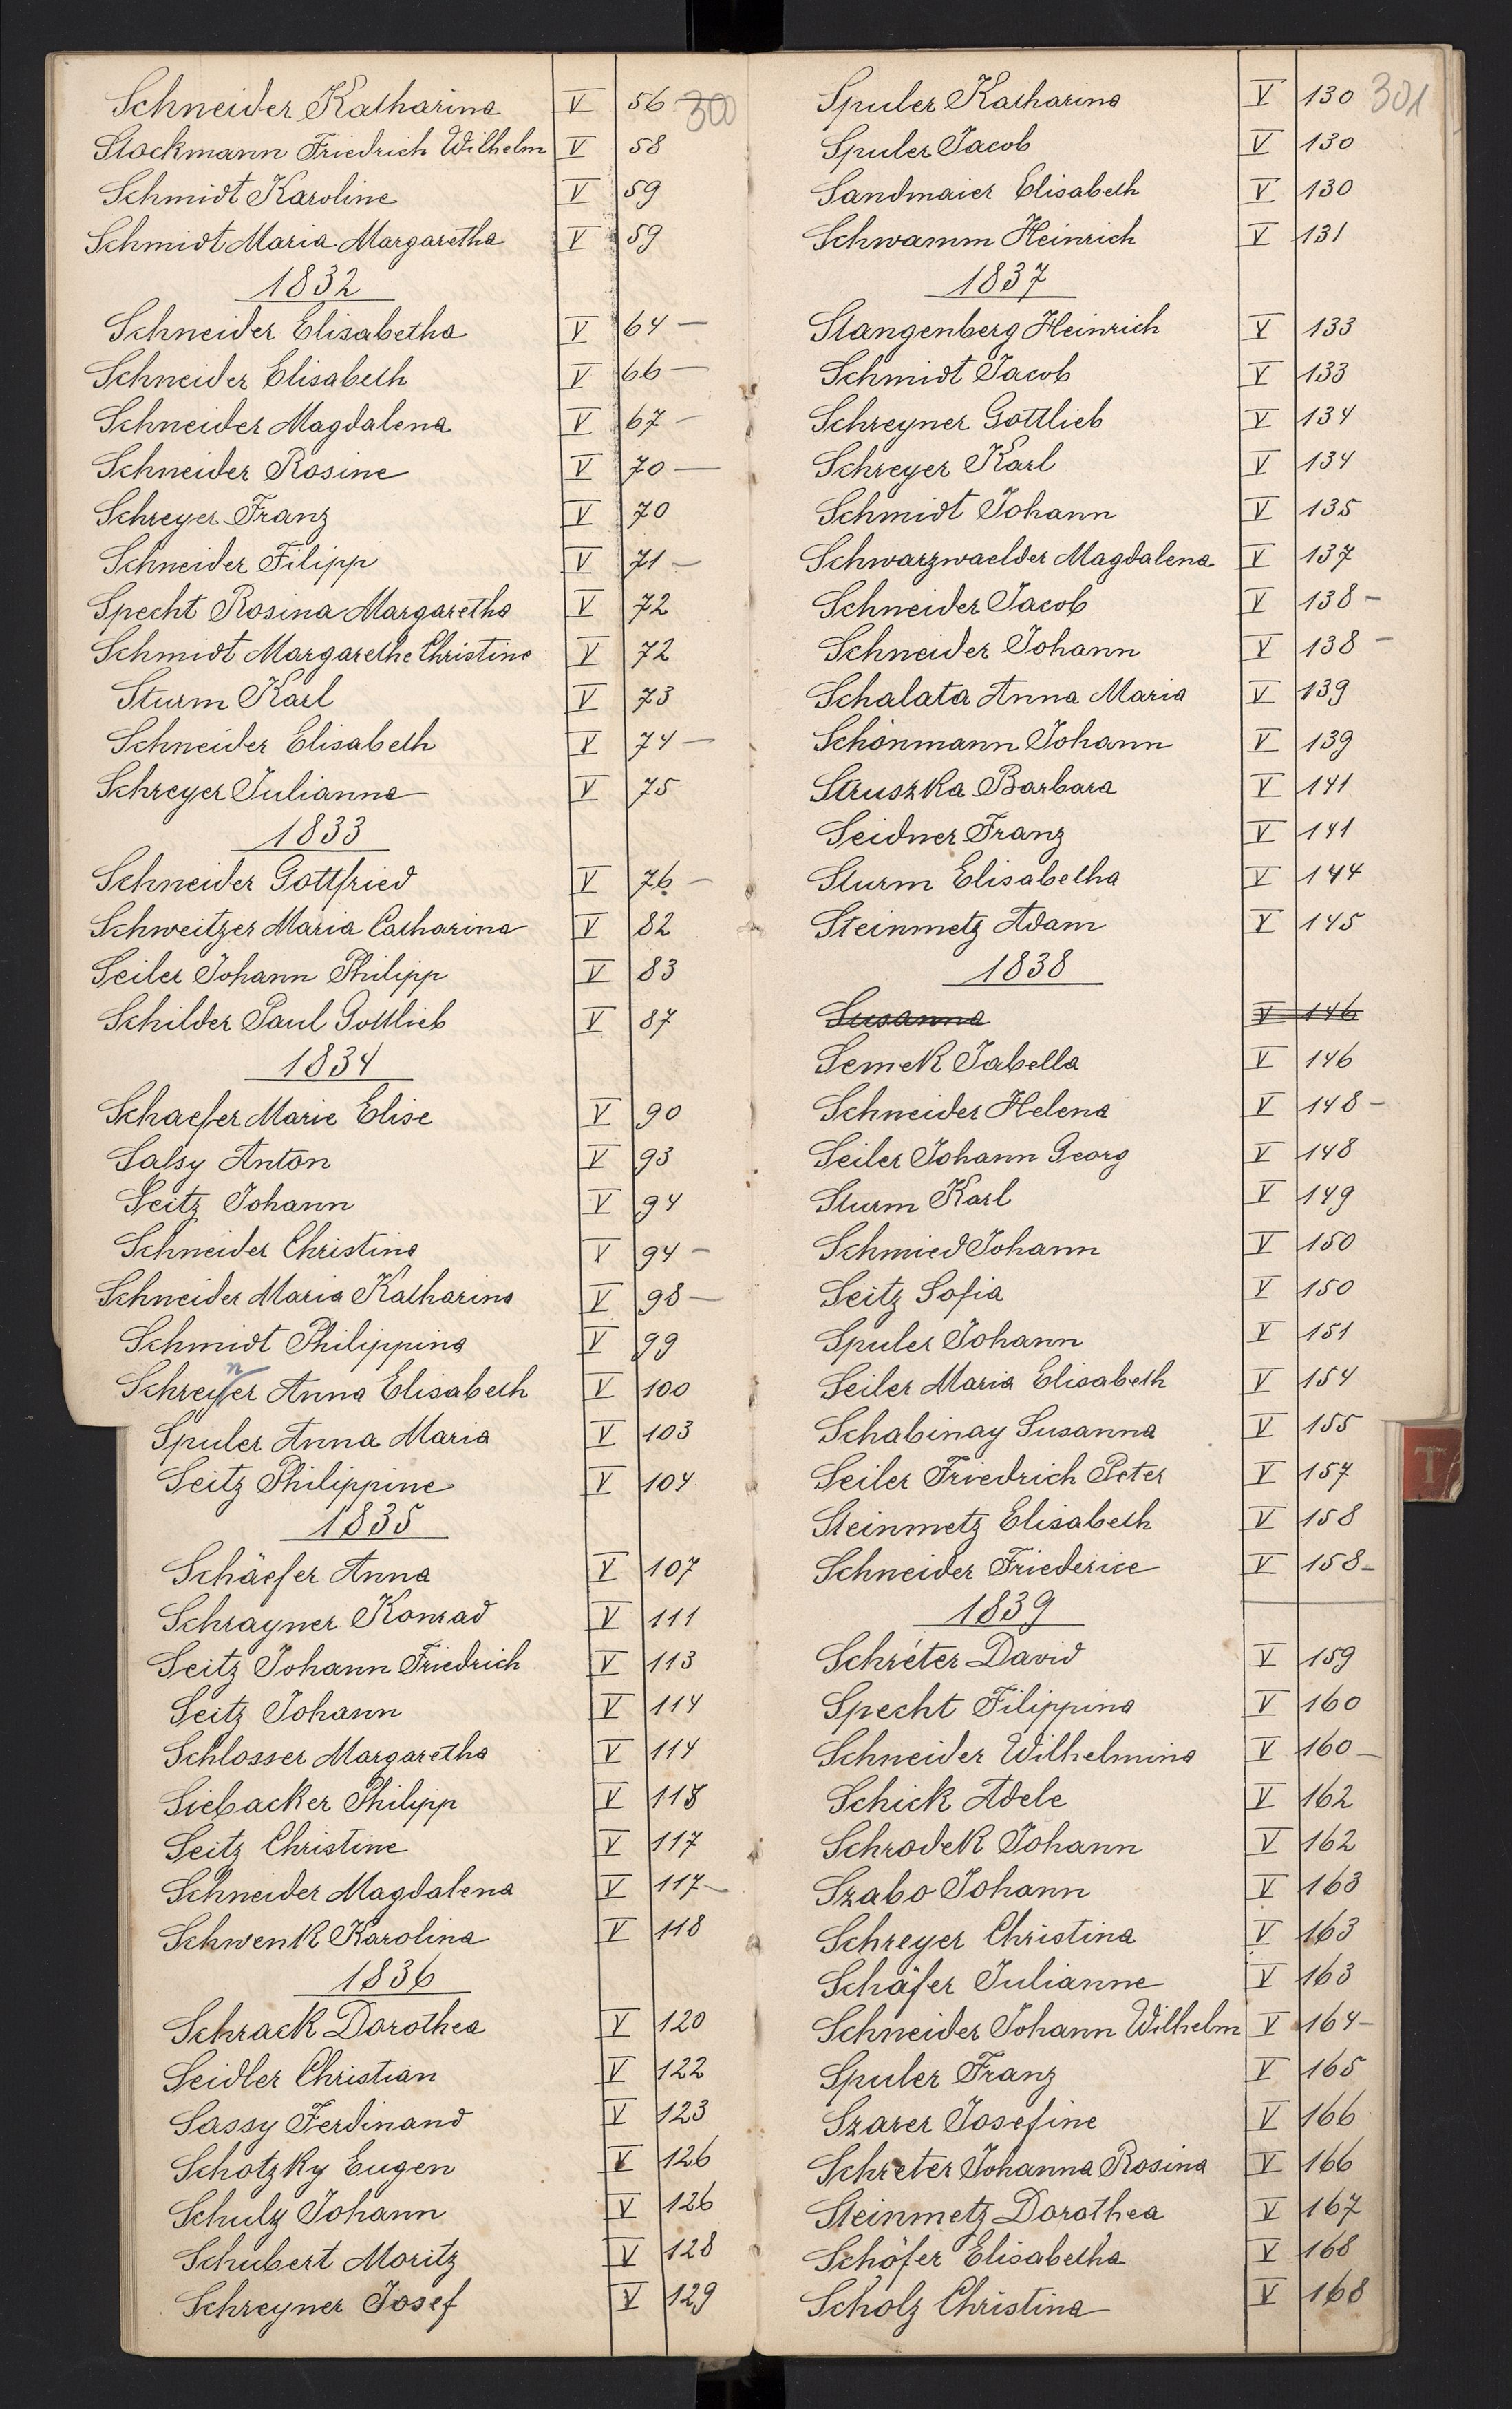 Schneider Katharina V 56 300
Stockmann Friedrich Wilhelm V 58
Schmidt Karoline V 59
Schmidt Maria Margaretha V 59
1832
Schneider Elisabetha V 64 —
Schneider Elisabeth V 66 —
Schneider Magdalena V 67 —
Schneider Rosine V 70 —
Schreyer Franz V 70
Schneider Filipp V 71 —
Specht Rosina Margaretha V 72
Schmidt Margarethe Christine V 72
Sturm Karl V 73
Schneider Elisabeth V 74 —
Schreyer Julianna V 75
1833
Schneider Gottfried V 76 —
Schweitzer Maria Catharina V 82
Seiler Johann Philipp V 83
Schilder Paul Gottlieb V 87
1834
Schaefer Marie Elise V 90
Salsy Anton V 93
Seitz Johann V 94
Schneider Christina V 94 —
Schneider Maria Katharina V 98 —
Schmidt Philippina V 99
n
Schreyer Anna Elisabeth V 100
Spuler Anna Maria V 103
Seitz Philippine V 104
1835
Schäefer Anna V 107
Schrayner Konrad V 111
Seitz Johann Friedrich V 113
Seitz Johann V 114
Schlosser Margaretha V 114
Siebacker Philipp V 118
Seitz Christine V 117
Schneider Magdalena V 117 —
Schwenk Karolina V 118
1836
Schrack Dorothea V 120
Seidler Christian V 122
Sassy Ferdinand V 123
Schotzky Eugen V 126
Schulz Johann V 126
Schubert Moritz V 128
Schreyner Josef V 129
Spuler Katharina V 130 301
Spuler Jacob V 130
Sandmaier Elisabeth V 130
Schwamm Heinrich V 131
1837
Stangenberg Heinrich V 133
Schmidt Jacob V 133
Schreyner Gottlieb V 134
Schreyer Karl V 134
Schmidt Johann V 135
Schwarzwaelder Magdalena V 137
Schneider Jacob V 138 —
Schneider Johann V 138 —
Schalata Anna Maria V 139
Schönmann Johann V 139
Struszka Barbara V 141
Seidner Franz V 141
Sturm Elisabetha V 144
Steinmetz Adam V 145
1838
Susanna V 146
Semek Isabella V 146
Schneider Helena V 148 —
Seiler Johann Georg V 148
Sturm Karl V 149
Schmied Johann V 150
Seitz Sofia V 150
Spuler Johann V 151
Seiler Maria Elisabeth V 154
Schabinay Susanna V 155
Seiler Friedrich Peter V 157
T
Steinmetz Elisabeth V 158
Schneider Friederice V 158 —
1839
Schréter David V 159
Specht Filippina V 160
Schneider Wilhelmina V 160 —
Schick Adele V 162
Schrodek Johann V 162
Szabo Johann V 163
Schreyer Christina V 163
Schäfer Julianne V 163
Schneider Johann Wilhelm V 164 —
Spuler Franz V 165
Szarer Josefine V 166
Schreter Johanna Rosina V 166
Steinmetz Dorothea V 167
Schöfer Elisabetha V 168
Scholz Christina V 168